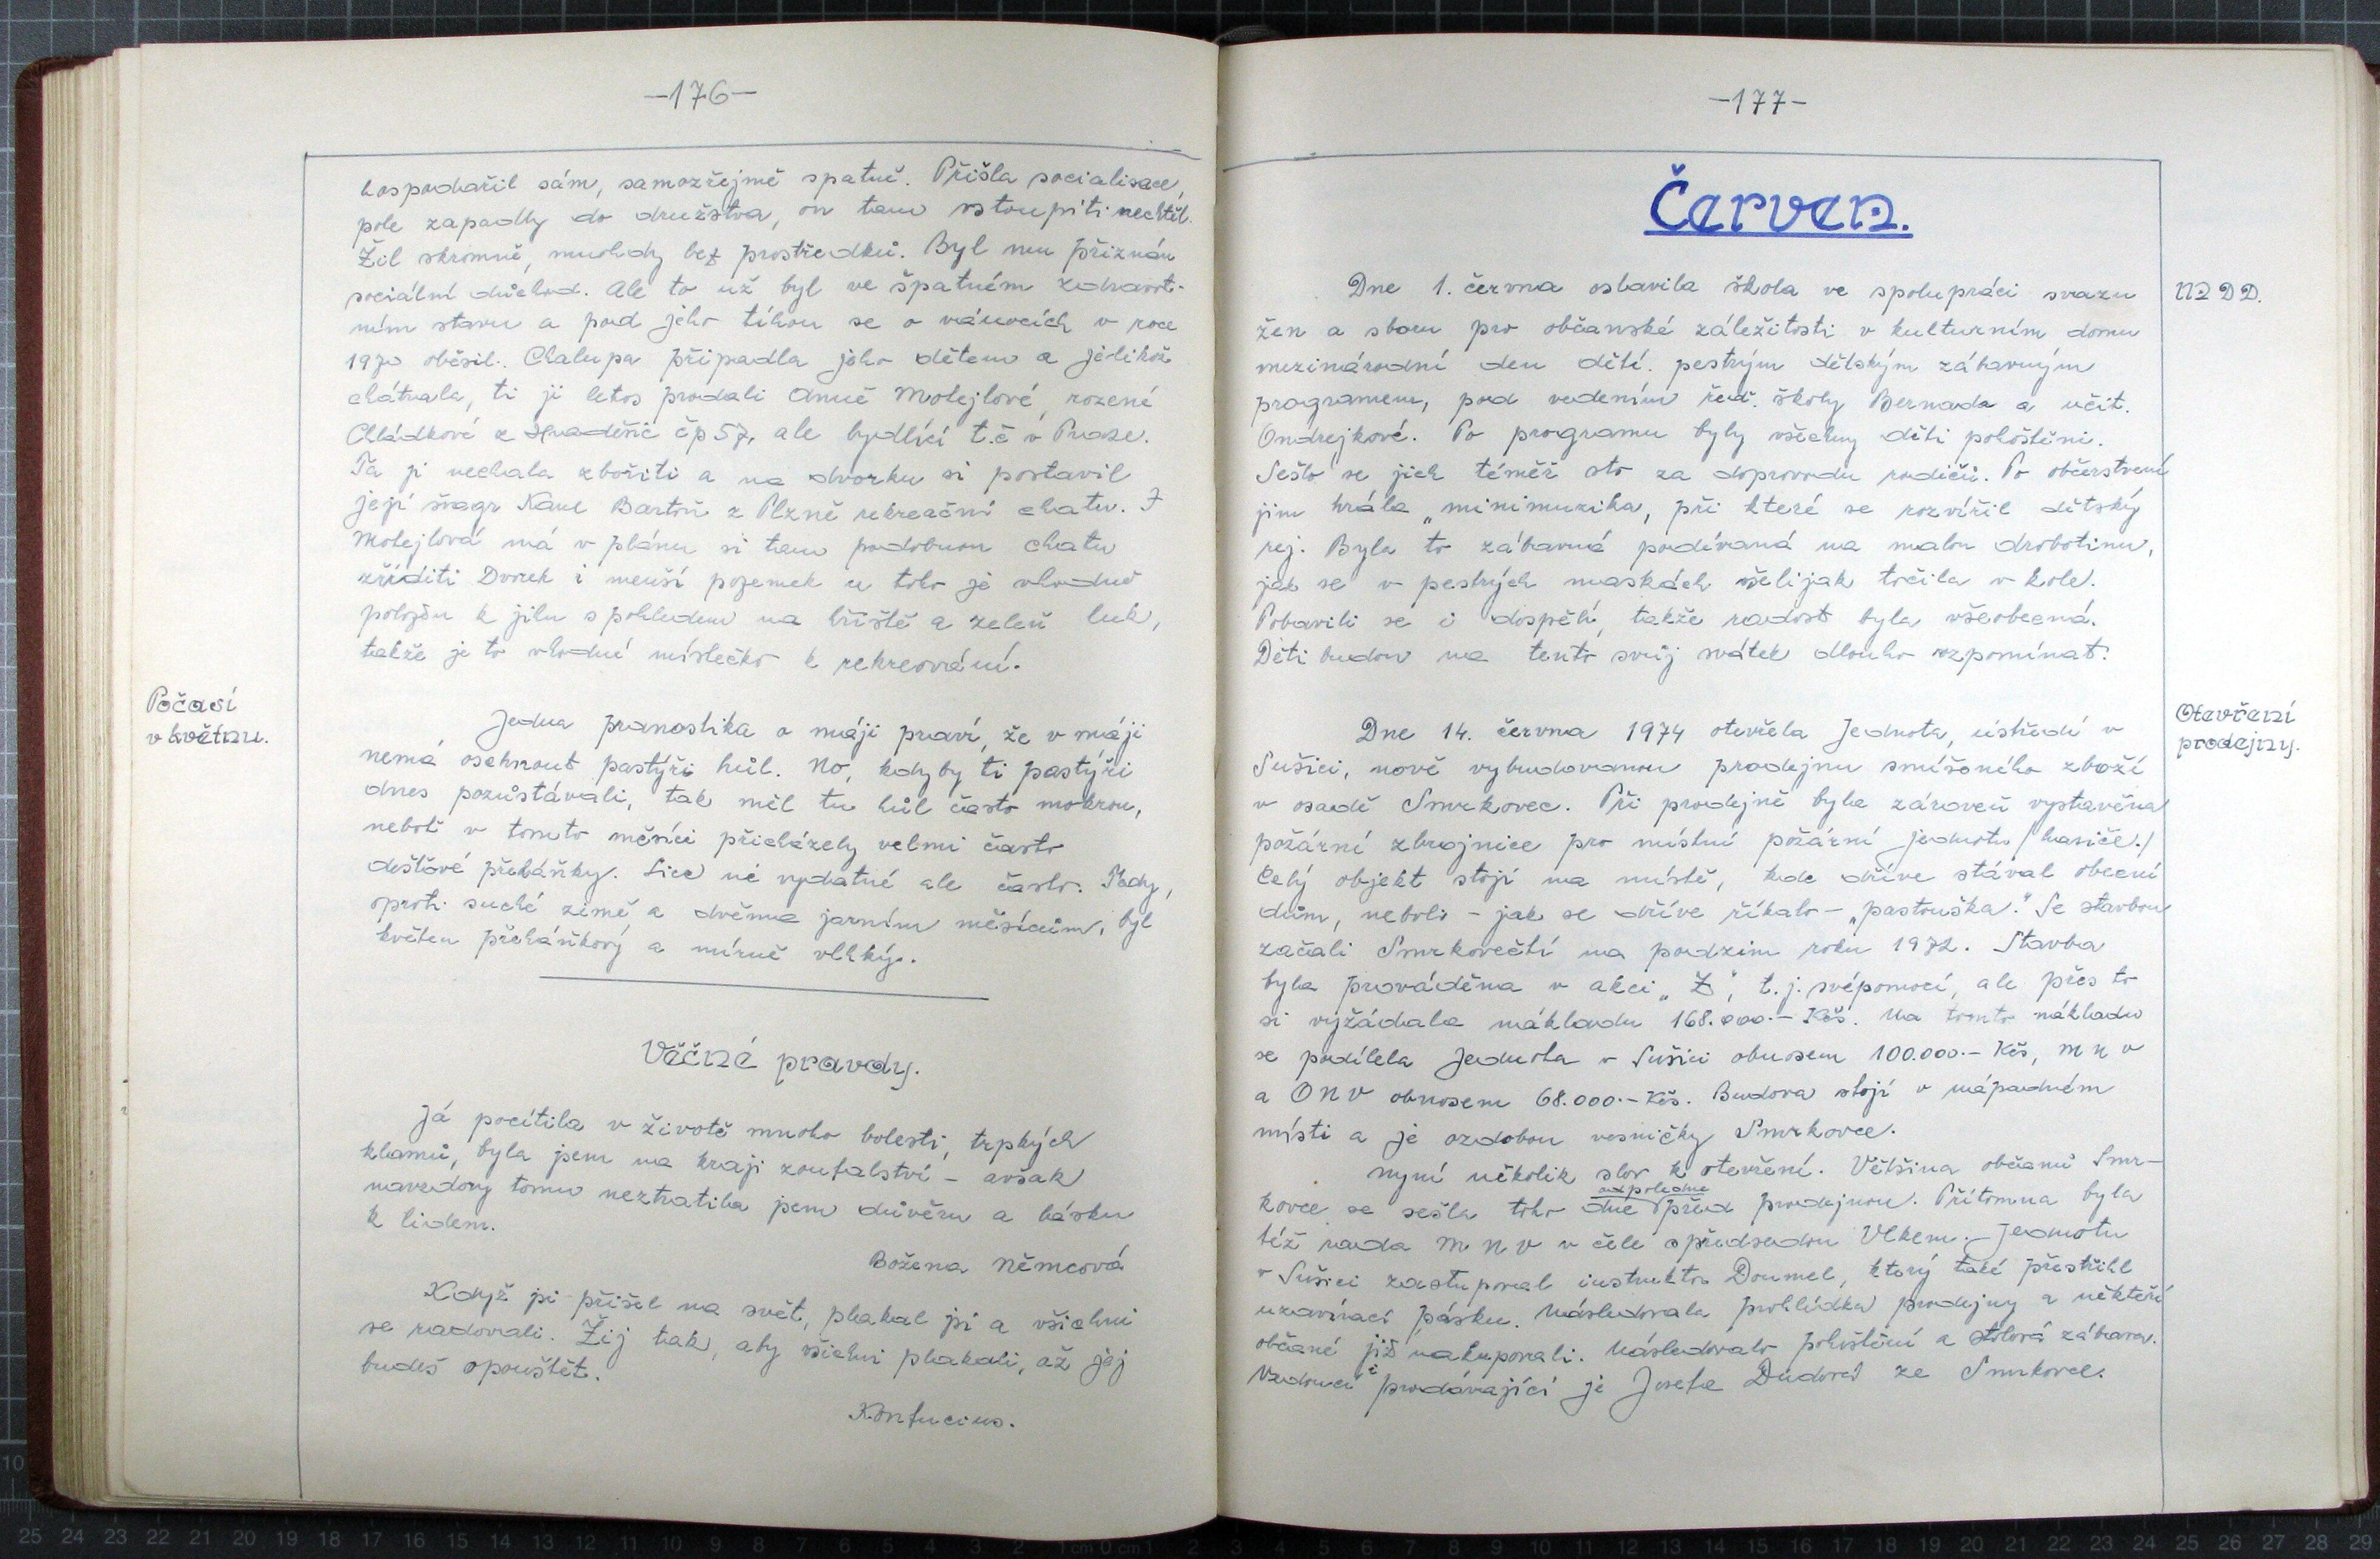 -176-
hospodařil sám, samozřejmě spatně. Přišla socialisace,
pole zapadly do družstva, on tam vstoupiti nechtěl.
Žil skromně, mnohdy bez prostředků. Byl mu přiznán
sociální důchod. Ale to už byl ve špatném zdravot-
ním stavu a pod jeho tíhou se o vánocích v roce
1970 oběsil. Chalupa připadla jeho dětem a jelikož
chátrala, ti ji letos prodali Anně Molejlové, rozené
Chládkové z Hradešic čp 57, ale bydlící t.č v Praze.
Ta ji nechala zbořiti a na dvorku si postavil
její švagr Karel Bartoň z Plzně rekreační chatu. I
Molejlová má v plánu si tam podobnou chatu
zříditi Dvorek i menší pozemek u toho je vhodně
položen k jihu s pohledem na hřiště a zeleň luk,
takže je to vhodné místečko k rekreování.
Počasí
v květnu.
Jedna pranostika o máji praví, že v máji
nemá oschnout pastýři hůl. No, kdyby ti pastýři
dnes pozůstávali, tak měl tu hůl často mokrou,
neboť v tomto měsíci přicházely velmi často
dešťové přeháňky. Sice né vydatné ale často. Tedy,
oproti suché zimě a dvěma jarním měsícům, byl
květen přeháňkový a mírně vlhký.
Věčné pravdy.
Já pocítila v životě mnoho bolesti, trpkých
klamů, byla jsem na kraji zoufalství - avšak
navzdory tomu neztratila jsem důvěru a lásku
k lidem.
Božena Němcová
Když jsi přišel na svět, plakal jsi a všichni
se radovali. Žij tak, aby všichni plakali, až jej
budeš opouštět.
Konfucius.
-177-
Červen.
MDD.
Dne 1. června oslavila škola ve spolupráci svazu
žen a sboru pro občanské záležitosti v kulturním domu
mezinárodní den dětí. pestrým dětským zábavným
programem, pod vedením řed. školy Bernada a učit.
Ondrejkové. Po programu byly všechny děti pohoštěni.
Sešlo se jich téměř sto za doprovodu rodičů. Po občerstvení
jim hrála „minimuzika, při které se rozvířil dětský
rej. Byla to zábavná podívaná na malou drobotinu,
jak se v pestrých maskách všelijak točila v kole.
Pobavili se i dospělí, takže radost byla všeobecná.
Děti budou na tento svůj svátek dlouho vzpomínat.
Otevření
prodejny.
Dne 14. června 1974 otevřela Jednota, ústředí v
Sušici, nově vybudovanou prodejnu smíšeného zboží
v osadě Smrkovec. Při prodejně byla zároveň vystavěna
požární zbrojnice pro místní požární jednotu /hasiče./
Celý objekt stojí na místě, kde dříve stával obecní
dům, neboli - jak se dříve říkalo - „pastouška." Se stavbou
začali Smrkovečtí na podzim roku 1972. Stavba
byla prováděna v akci „Z", t.j. svépomocí, ale přes to
si vyžádala nákladu 168.000.- Kčs. Na tomto nákladu
se podílela Jednota v Sušici obnosem 100.000.- Kčs, MNV
a ONV obnosem 68.000.- Kčs. Budova stojí v nápadném
místi a je ozdobou vesničky Smrkovce.
Nyní několik slov k otevření. Většina občanů Smr-
kovce se sešla toho dne odpoledne před prodejnou. Přítomna byla
též rada MNV v čele s předsedou Vlkem. Jednotu
v Sušici zastupoval instruktor Doumel, který také přestřihl
uzavírací pásku. Následovala prohlídka prodejny a někteří
občané již nakupovali. Následovalo pohoštění a stolová zábava.
Vedoucí i prodávající je Josefa Dudová ze Smrkovce.